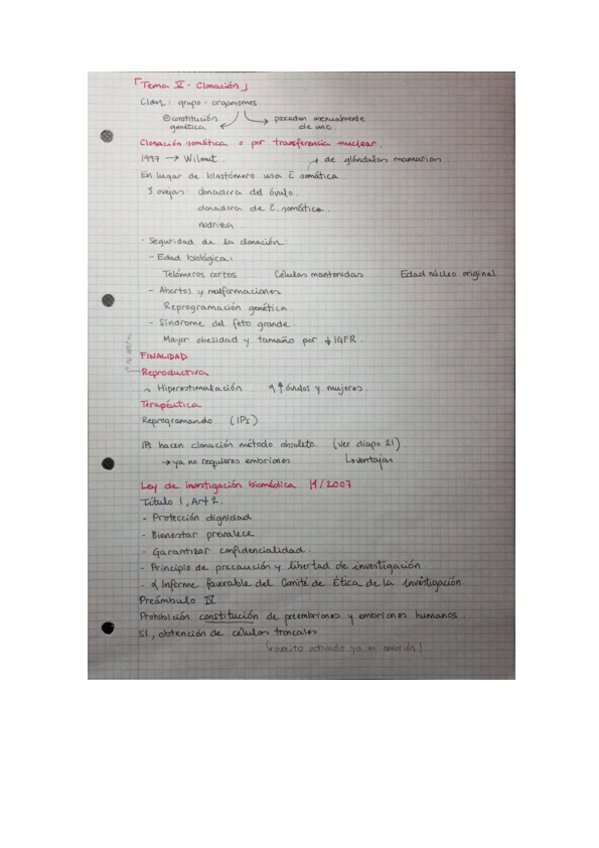 「Tema V - Clonación」
Clon: grupo organismos
constitución genética
proceden asexualmente de uno.
Clonación somática o por transferencia nuclear.
1997 → Wilmut.
→ de glándulas mamarias.
En lugar de blastómero usa c̄ somática
3 ovejas: donadora del óvulo.
donadora de c̄. somática.
nodriza
· Seguridad de la clonación:
- Edad biológica:
Telómeros cortos Células mantenidas Edad núcleo original.
- Abortos y malformaciones
Reprogramación genética.
- Síndrome del feto grande.
Mayor obesidad y tamaño por ↓ IGFR.
FINALIDAD
Reproductiva
Hiperestimulación ↑ óvulos y mujeres.
Terapéutica
Reprogramando (IPs)
IPs hacen clonación método obsoleto. (ver diapo 21)
→ ya no requieres embriones ↳ ventajas
Ley de investigación biomédica 14/2007
Título 1, Art 2.
- Protección dignidad
- Bienestar prevalece
- Garantizar confidencialidad.
- Principio de precaución y libertad de investigación.
- Informe favorable del Comité de Ética de la investigación.
Preámbulo IV
Prohibición constitución de preembriones y embriones humanos.
SÍ, obtención de células troncales
↳ ovocito activado ya es embrión!